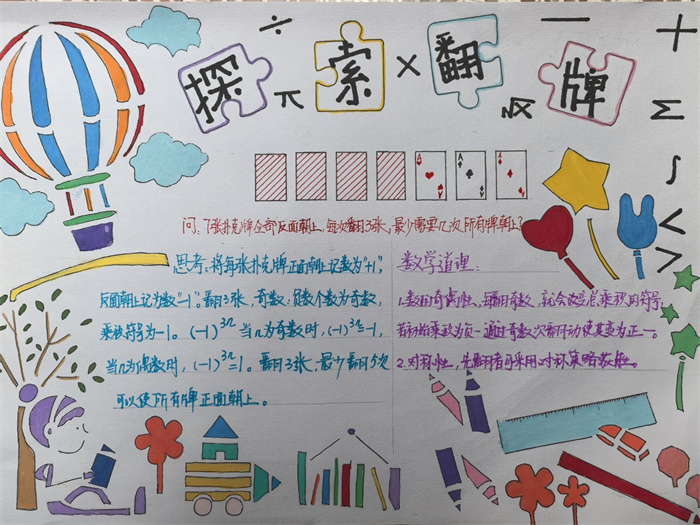 ÷
探 π 索 × 翻 √x 牌
－ ＋
Σ
∫
<
>
A A A
问：7张扑克牌全部反面朝上，每次翻3张，最少需要几次所有牌朝上？
思考：将每张扑克牌正面朝上记数为"+1"，
反面朝上记为数"-1"。翻3张，奇数：负数个数为奇数，
乘积符号为-1。(-1)³ⁿ 当n为奇数时，(-1)³ⁿ=-1，
当n为偶数时，(-1)³ⁿ=1。翻3张，最少翻次
可以使所有牌正面朝上。
数学道理：
1.数的奇偶性，每翻奇数，就会改变总乘积的符号，
若初始乘积为负一通过奇数次翻动使其变为正一。
2.对称性，先翻者可采用对称策略获胜。